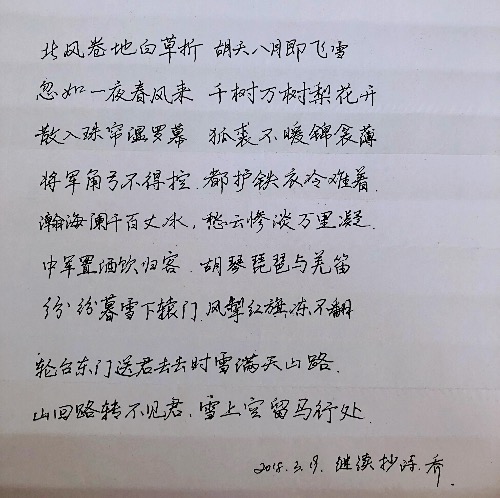 北风卷地白草折 胡天八月即飞雪
忽如一夜春风来 千树万树梨花开
散入珠帘湿罗幕 狐裘不暖锦衾薄
将军角弓不得控.都护铁衣冷难着.
瀚海阑干百丈冰,愁云惨淡万里凝.
中军置酒饮归客.胡琴琵琶与羌笛
纷纷暮雪下辕门.风掣红旗冻不翻
轮台东门送君去去时雪满天山路.
山回路转不见君.雪上空留马行处
2018.3.19.继续抄诗.乔.